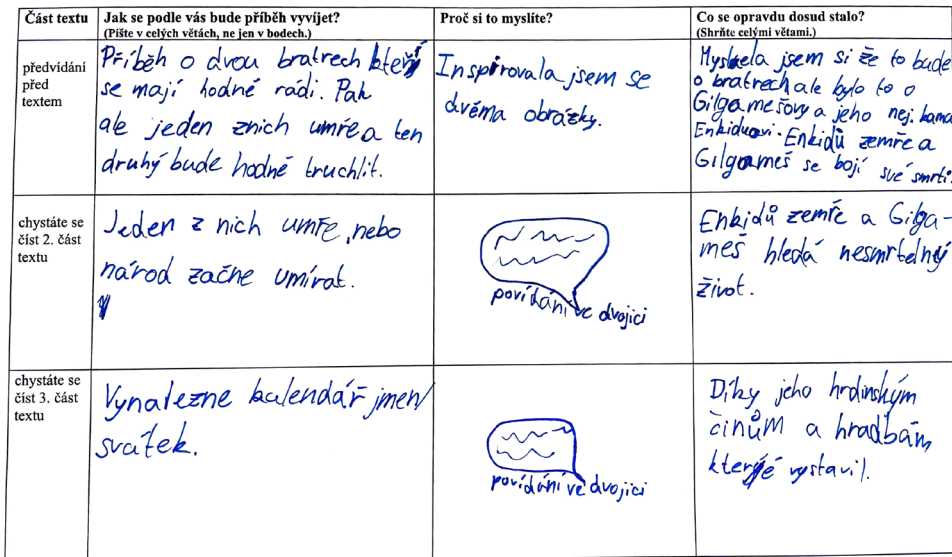 Část textu
Jak se podle vás bude příběh vyvíjet?
(Pište v celých větách, ne jen v bodech.)
Proč si to myslíte?
Co se opravdu dosud stalo?
(Shrňte celými větami.)
předvídání
před
textem
Příběh o dvou bratrech kteří
se mají hodné rádi. Pak
ale jeden znich umře a ten
druhý bude hodné truchlit.
Inspirovala jsem se
dvéma obrázky.
Myslela jsem si že to bude
o bratrech ale bylo to o
Gilgamešovy a jeho nej. kama
Enkiduovi. Enkidů zemře a
Gilgameš se bojí své smrti.
chystáte se
číst 2. část
textu
Jeden z nich umře, nebo
národ začne umírat.
povídání ve dvojici
Enkidů zemře a Gilga-
meš hledá nesmrtelný
život.
chystáte se
číst 3. část
textu
Vynalezne kalendář jmen/
svátek.
povídání ve dvojici
Díky jeho hrdinským
činům a hradbám
které vystavil.